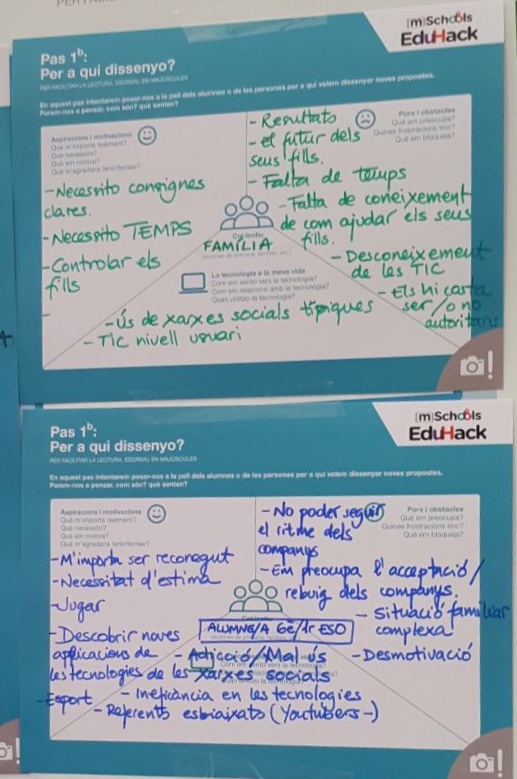 [m]Schools
EduHack
Pas 1b:
Per a qui dissenyo?
PER FACILITAR LA LECTURA, ESCRIVIU EN MAJÚSCULES
En aquest pas intentarem posar-nos a la pell dels alumnes o de les persones per a qui volem dissenyar noves propostes.
Parem-nos a pensar, com són? què senten?
Aspiracions i motivacions
Què m'importa realment?
Què necessito?
Què em motiva?
Què m'agradaria tenir/fer/ser?
- Necessito consignes
clares.
- Necessito TEMPS
- Controlar els
fills
-
Pors i obstacles
Què em preocupa?
Quines frustracions tinc?
Què em bloqueja?
- Resultats
- el futur dels
seus fills.
- Falta de temps
- Falta de coneixement
de com ajudar els seus
fills.
- Desconeixement
de les TIC
- Els hi costa
ser /o no
autoritaris
Col·lectiu
FAMÍLIA
La tecnologia a la meva vida
Com em sento vers la tecnologia?
Com em relaciono amb la tecnologia?
Quan utilitzo la tecnologia?
- Ús de xarxes socials típiques
- TIC nivell usuari
[m]Schools
EduHack
Pas 1b:
Per a qui dissenyo?
PER FACILITAR LA LECTURA, ESCRIVIU EN MAJÚSCULES
En aquest pas intentarem posar-nos a la pell dels alumnes o de les persones per a qui volem dissenyar noves propostes.
Parem-nos a pensar, com són? què senten?
Aspiracions i motivacions
Què m'importa realment?
Què necessito?
Què em motiva?
Què m'agradaria tenir/fer/ser?
- M'importa ser reconegut
- Necessitat d'estima
- Jugar
- Descobrir noves
aplicacions de
les tecnologies
- Esport
Pors i obstacles
Què em preocupa?
Quines frustracions tinc?
Què em bloqueja?
- No poder seguir
el ritme dels
companys
- Em preocupa l'acceptació/
rebuig dels companys.
- Situació familiar
complexa
- Desmotivació
ALUMNE/A 6è/1r ESO
- Adicció/Mal ús
de les xarxes socials
- Ineficància en les tecnologies
- Referents esbiaixats (Youtubers-)